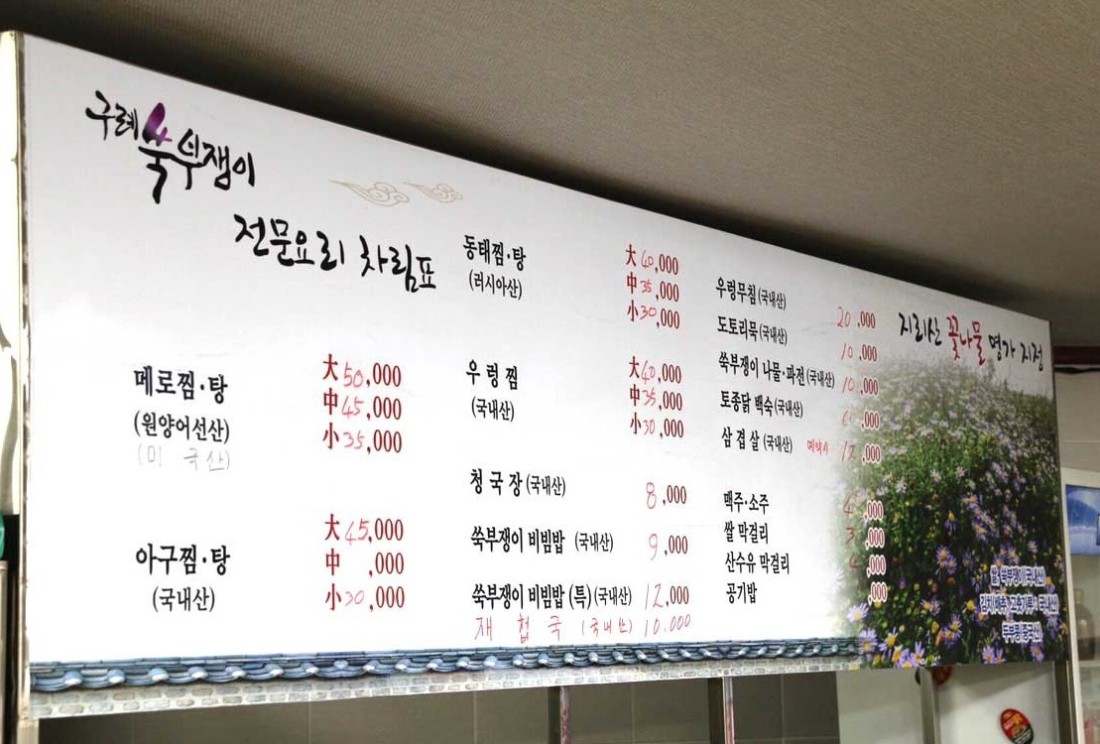 구례 쑥부쟁이
전문요리 차림표
메로찜·탕
(원양어선산)
(미 국산)
大 50,000
中 45,000
小 35,000
아구찜·탕
(국내산)
大 45,000
中 ,000
小 30,000
동태찜·탕
(러시아산)
大 40,000
中 35,000
小 30,000
우렁찜
(국내산)
大 40,000
中 35,000
小 30,000
청국장 (국내산) 8,000
쑥부쟁이 비빔밥 (국내산) 9,000
쑥부쟁이 비빔밥 (특) (국내산) 12,000
재첩국 (국내산) 10.000
우렁무침 (국내산) 20,000
도토리묵 (국내산) 10,000
쑥부쟁이 나물·파전 (국내산) 10,000
토종닭 백숙 (국내산) ,000
삼겹살 (국내산) 12,000
맥주·소주 4,000
쌀 막걸리 3,000
산수유 막걸리 ,000
공기밥 ,000
지리산 꽃나물 명가 지정
쌀, 쑥부쟁이(국내산)
김치(배추, 고춧가루 : 국내산)
두부콩(중국산)